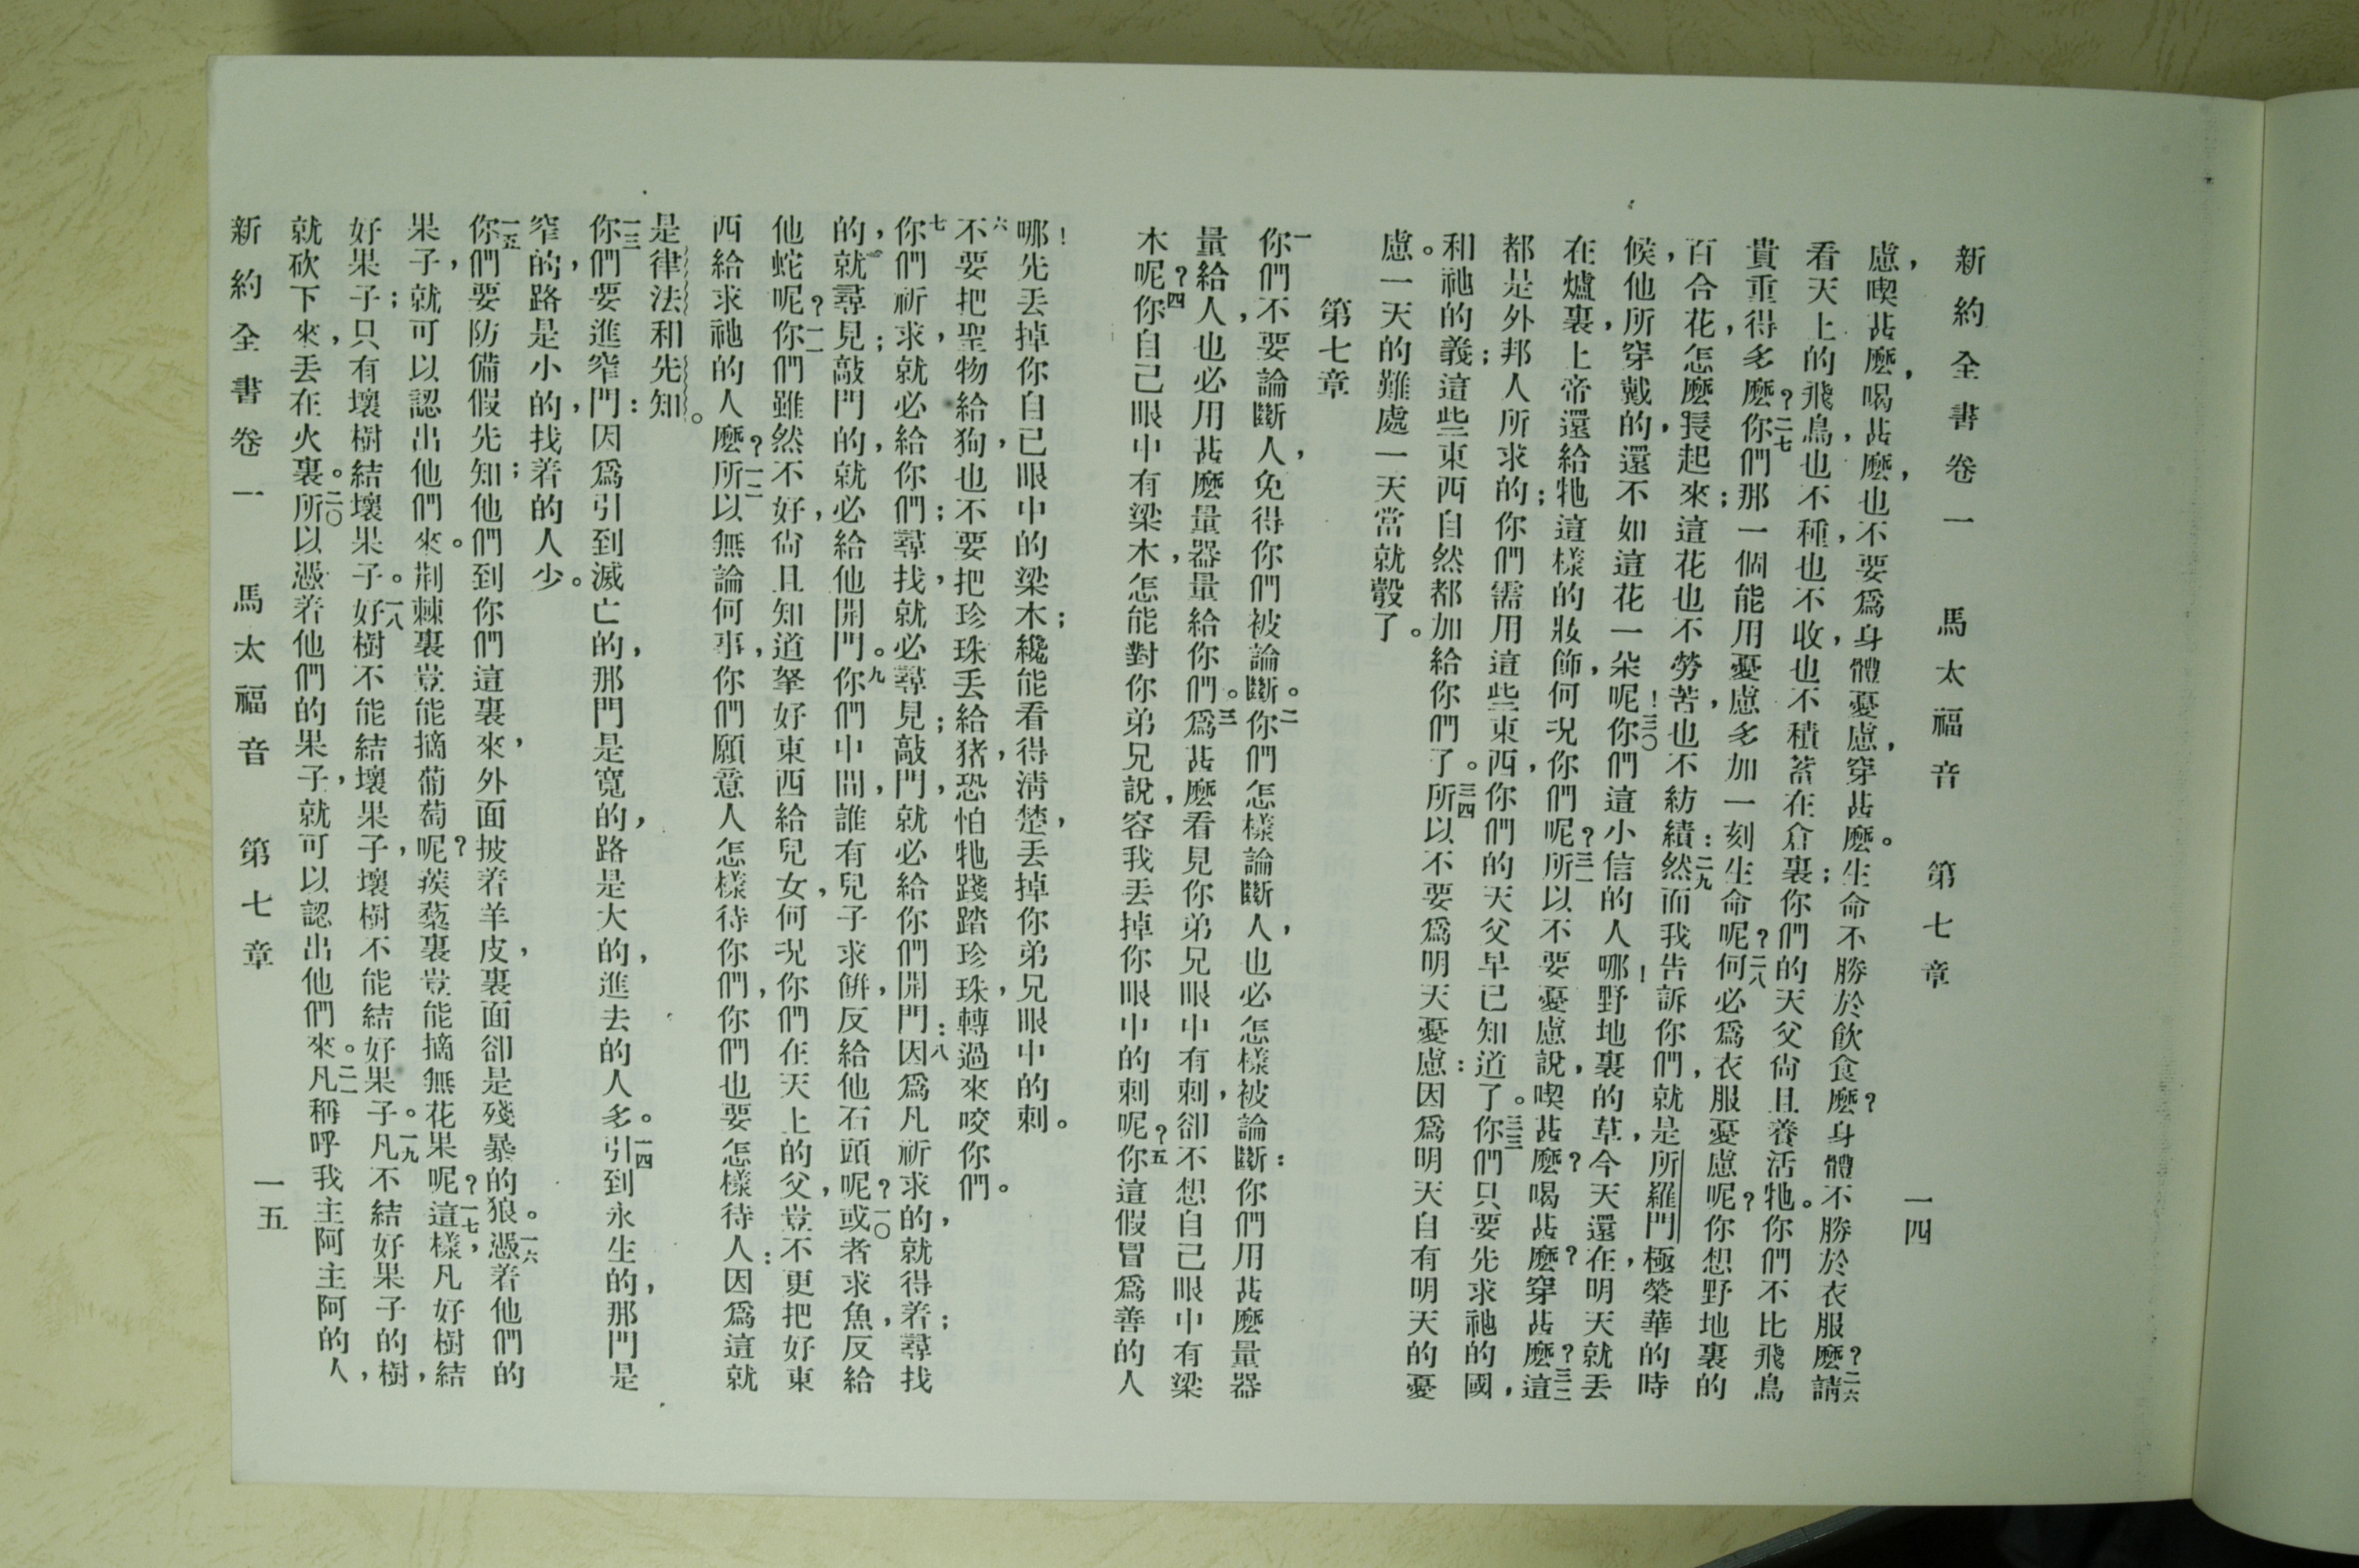 新約全書卷一 馬太福音 第七章 一四
慮,喫甚麼,喝甚麼,也不要爲身體憂慮,穿甚麼。生命不勝於飲食麼?身體不勝於衣服麼?二六請
看天上的飛鳥,也不種,也不收,也不積蓄在倉裏;你們的天父尙且養活牠。你們不比飛鳥
貴重得多麼?二七你們那一個能用憂慮多加一刻生命呢?二八何必爲衣服憂慮呢?你想野地裏的
百合花,怎麼長起來;這花也不勞苦,也不紡績:二九然而我告訴你們,就是所羅門極榮華的時
候,他所穿戴的,還不如這花一朵呢!三〇你們這小信的人哪!野地裏的草,今天還在,明天就丟
在爐裏,上帝還給牠這樣的妝飾,何况你們呢?三一所以不要憂慮說,喫甚麼?喝甚麼?穿甚麼?三二這
都是外邦人所求的;你們需用這些東西,你們的天父早已知道了。三三你們只要先求祂的國,
和祂的義;這些東西自然都加給你們了。三四所以不要爲明天憂慮:因爲明天自有明天的憂
慮。一天的難處一天當就彀了。
第七章
一你們不要論斷人,免得你們被論斷。二你們怎樣論斷人,也必怎樣被論斷:你們用甚麼量器
量給人,也必用甚麼量器量給你們。三爲甚麼看見你弟兄眼中有刺,卻不想自己眼中有梁
木呢?四你自己眼中有梁木,怎能對你弟兄說,容我丟掉你眼中的刺呢?五你這假冒爲善的人
哪!先丟掉你自已眼中的梁木;纔能看得淸楚,丟掉你弟兄眼中的刺。
六不要把聖物給狗,也不要把珍珠丢給猪,恐怕牠踐踏珍珠,轉過來咬你們。
七你們祈求,就必給你們;尋找,就必尋見;敲門,就必給你們開門:八因爲凡祈求的,就得着;尋找
的,就尋見;敲門的,就必給他開門。九你們中間,誰有兒子求餅,反給他石頭呢?一〇或者求魚,反給
他蛇呢?一一你們雖然不好,尙且知道拏好東西給兒女,何况你們在天上的父,豈不更把好東
西給求祂的人麼?一二所以無論何事,你們願意人怎樣待你們,你們也要怎樣待人:因爲這就
是律法和先知。
一三你們要進窄門:因爲引到滅亡的,那門是寬的,路是大的,進去的人多。一四引到永生的,那門是
窄的,路是小的,找着的人少。
一五你們要防備假先知;他們到你們這裏來,外面披着羊皮,裏面卻是殘暴的狼。一六憑着他們的
果子,就可以認出他們來。荆棘裏豈能摘葡萄呢?蒺藜裏豈能摘無花果呢?一七這樣,凡好樹結
好果子;只有壞樹結壞果子。一八好樹不能結壞果子,壞樹不能結好果子。一九凡不結好果子的樹,
就砍下來,丟在火裏。二〇所以憑着他們的果子,就可以認出他們來。二一凡稱呼我主阿主阿的人,
新約全書卷一 馬太福音 第七章 一五